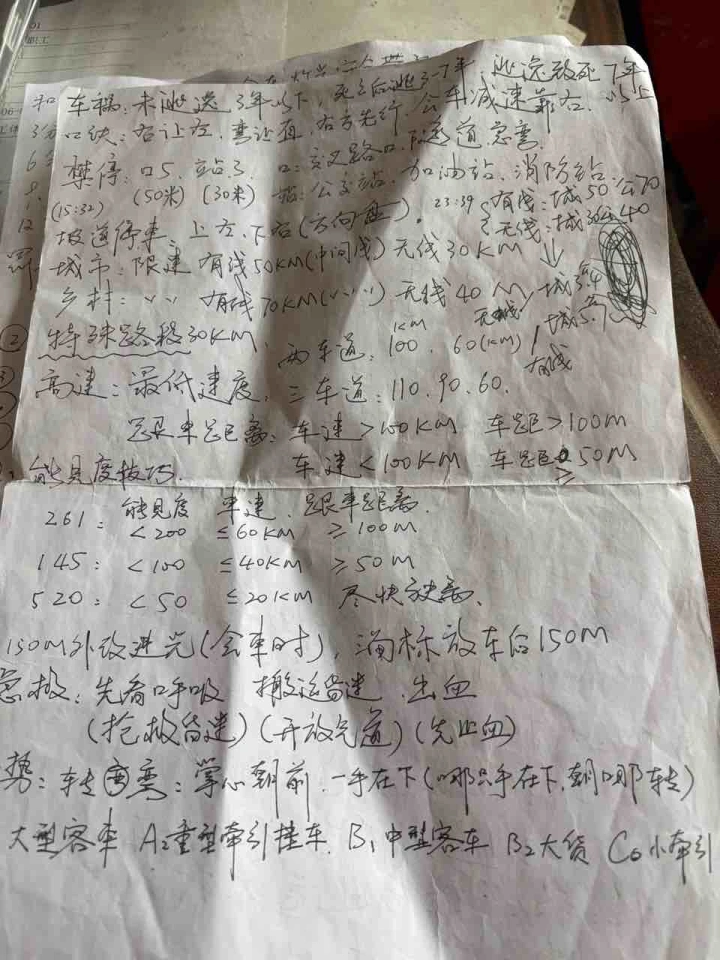 车祸:未逃逸3年以下,死亡后逃3-7年 逃逸致死7年以上
口诀:右让左,弯让直,右方先行,公车减速靠右
禁停:口5,站3 口:交叉路口,隧道,急弯,
(50米) (30米) 站:公交站,加油站,消防站
(15:32) 23:39 有线:城50公70
无线:城30公40
坡道停车,上左,下右(方向盘)
城市:限速 有线50KM(中间线) 无线30KM
乡村:〃 有线70KM(〃) 无线40
无线 城3公4
有线 城5公7
特殊路段30KM
高速:最低速度,两车道:100,60(KM)
三车道:110,90,60.
跟车距离:车速>100KM 车距>100M
车速<100KM 车距≥50M
能见度技巧.
能见度 车速 跟车距离
261: <200 ≤60KM ≥100M
145: <100 ≤40KM ≥50M
520: <50 ≤20KM 尽快驶离.
150M外改近光(会车时),
放车后150M
急救:先看呼吸 搬运昏迷 出血
(抢救昏迷)(开放气道)(先止血)
势:转弯:掌心朝前,一手在下(哪只手在下,朝哪转)
大型客车 A2重型牵引挂车 B1中型客车 B2大货 C6小牵引